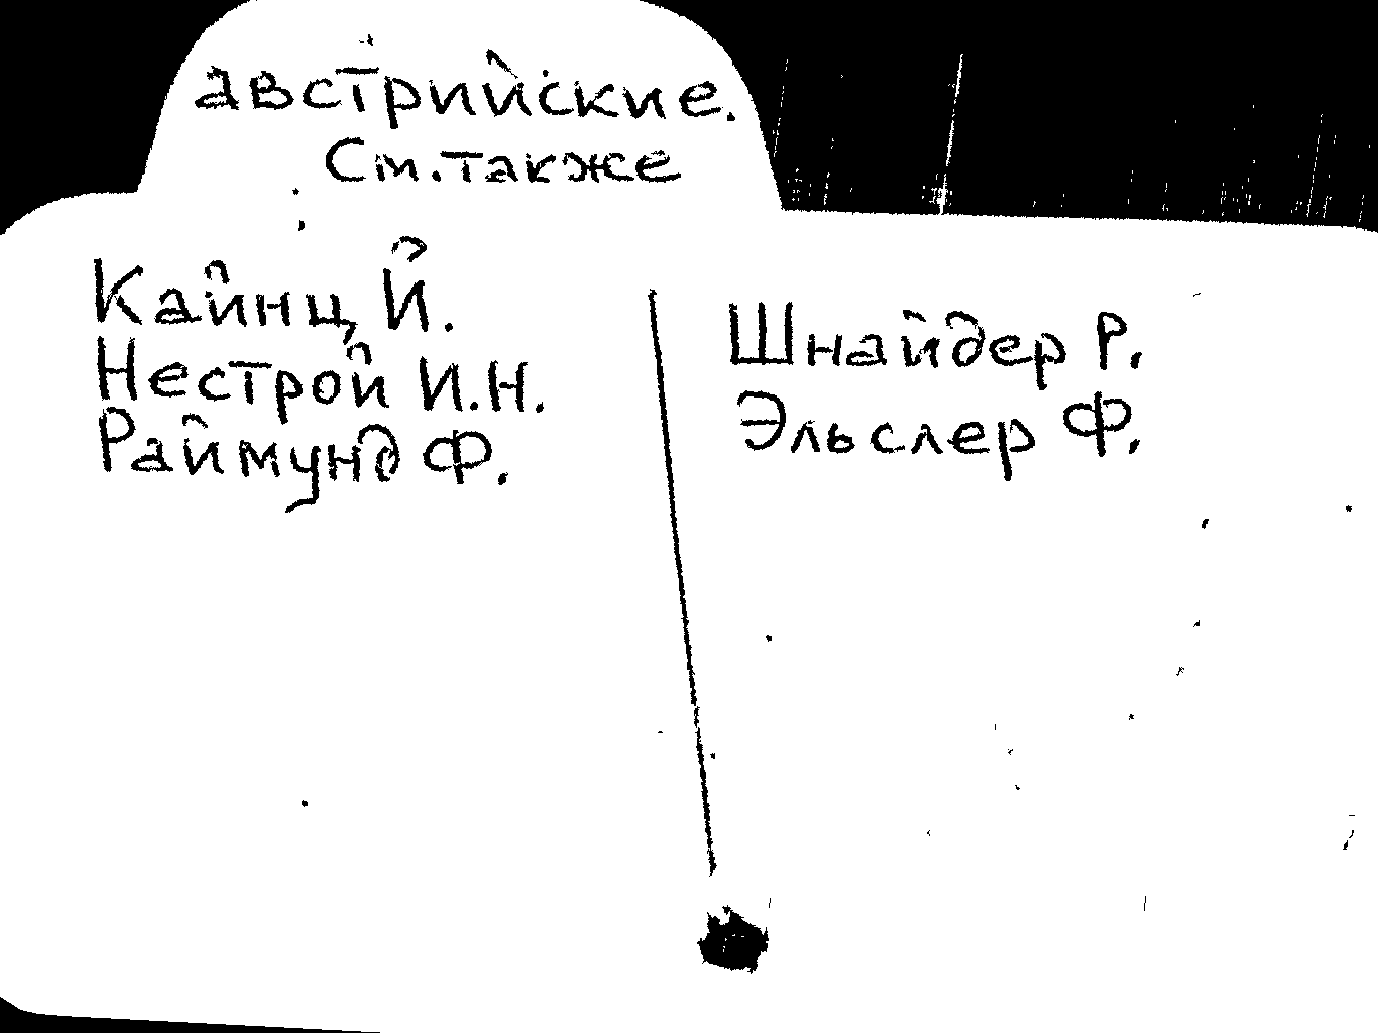 австрийские.
См. также
Кайнц Й.
Нестрой И.Н.
Раймунд Ф.
Шнайдер Р.
Эльслер Ф.